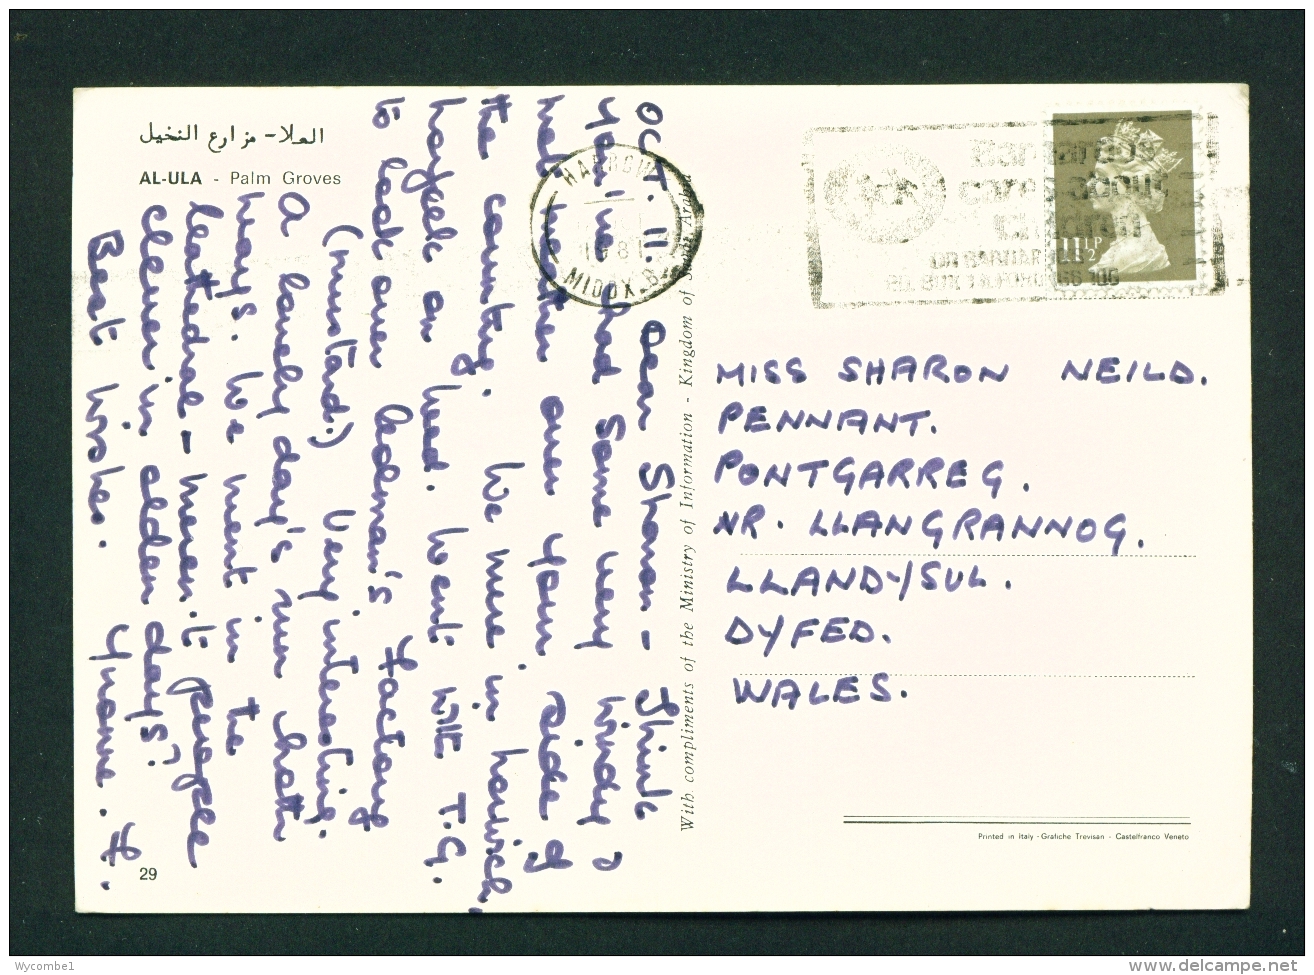 العلا - مزارع النخيل
AL-ULA - Palm Groves
Oct. 11. Dear Sharon - Think
you've had some very windy &
wet weather over your side of
the country. We were in Norwich,
Norfolk on Wed. went with T.G.
to look over Colman's factory
(mustard.) Very interesting.
A lovely day's run thro
ways. We went in the
Cathedral - weren't people
clever in olden days?
Best wishes. Yvonne. H.
29
With compliments of the Ministry of Information - Kingdom of Saudi Arabia
HARROW
1981
MIDDX.
Barnardos
cares about
Children
DR BARNARDOS
11½P
MISS SHARON NEILD.
PENNANT.
PONTGARREG.
NR. LLANGRANNOG.
LLANDYSUL.
DYFED.
WALES.
Printed in Italy - Grafiche Trevisan - Castelfranco Veneto
Wycombe1
www.delcampe.net